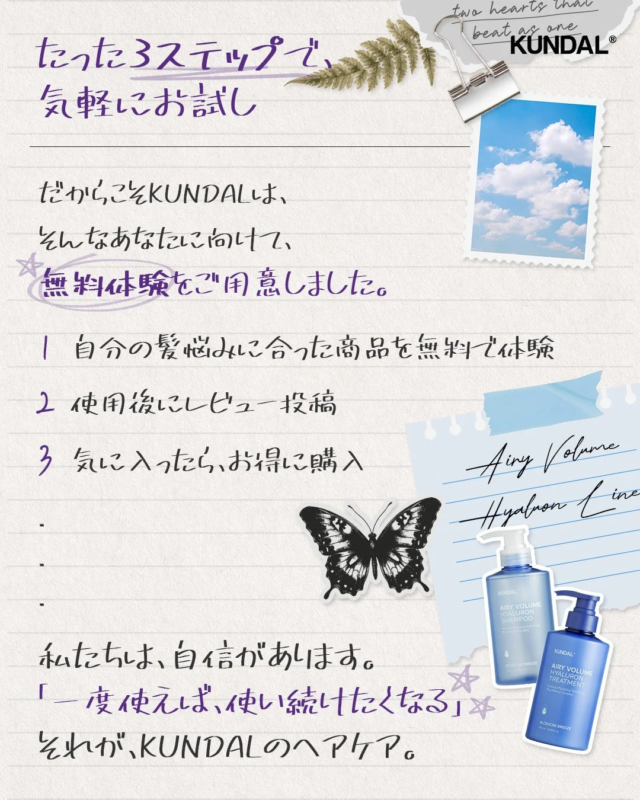 two hearts that
beat as one
KUNDAL®
たった3ステップで、
気軽にお試し
だからこそKUNDALは、
そんなあなたに向けて、
無料体験をご用意しました。
1 自分の髪悩みに合った商品を無料で体験
2 使用後にレビュー投稿
3 気に入ったら、お得に購入
Airy Volume
Hyaluron Line
KUNDAL
AIRY VOLUME
HYALURON
SHAMPOO
KUNDAL
AIRY VOLUME
HYALURON
TREATMENT
私たちは、自信があります。
「一度使えば、使い続けたくなる」
それが、KUNDALのヘアケア。